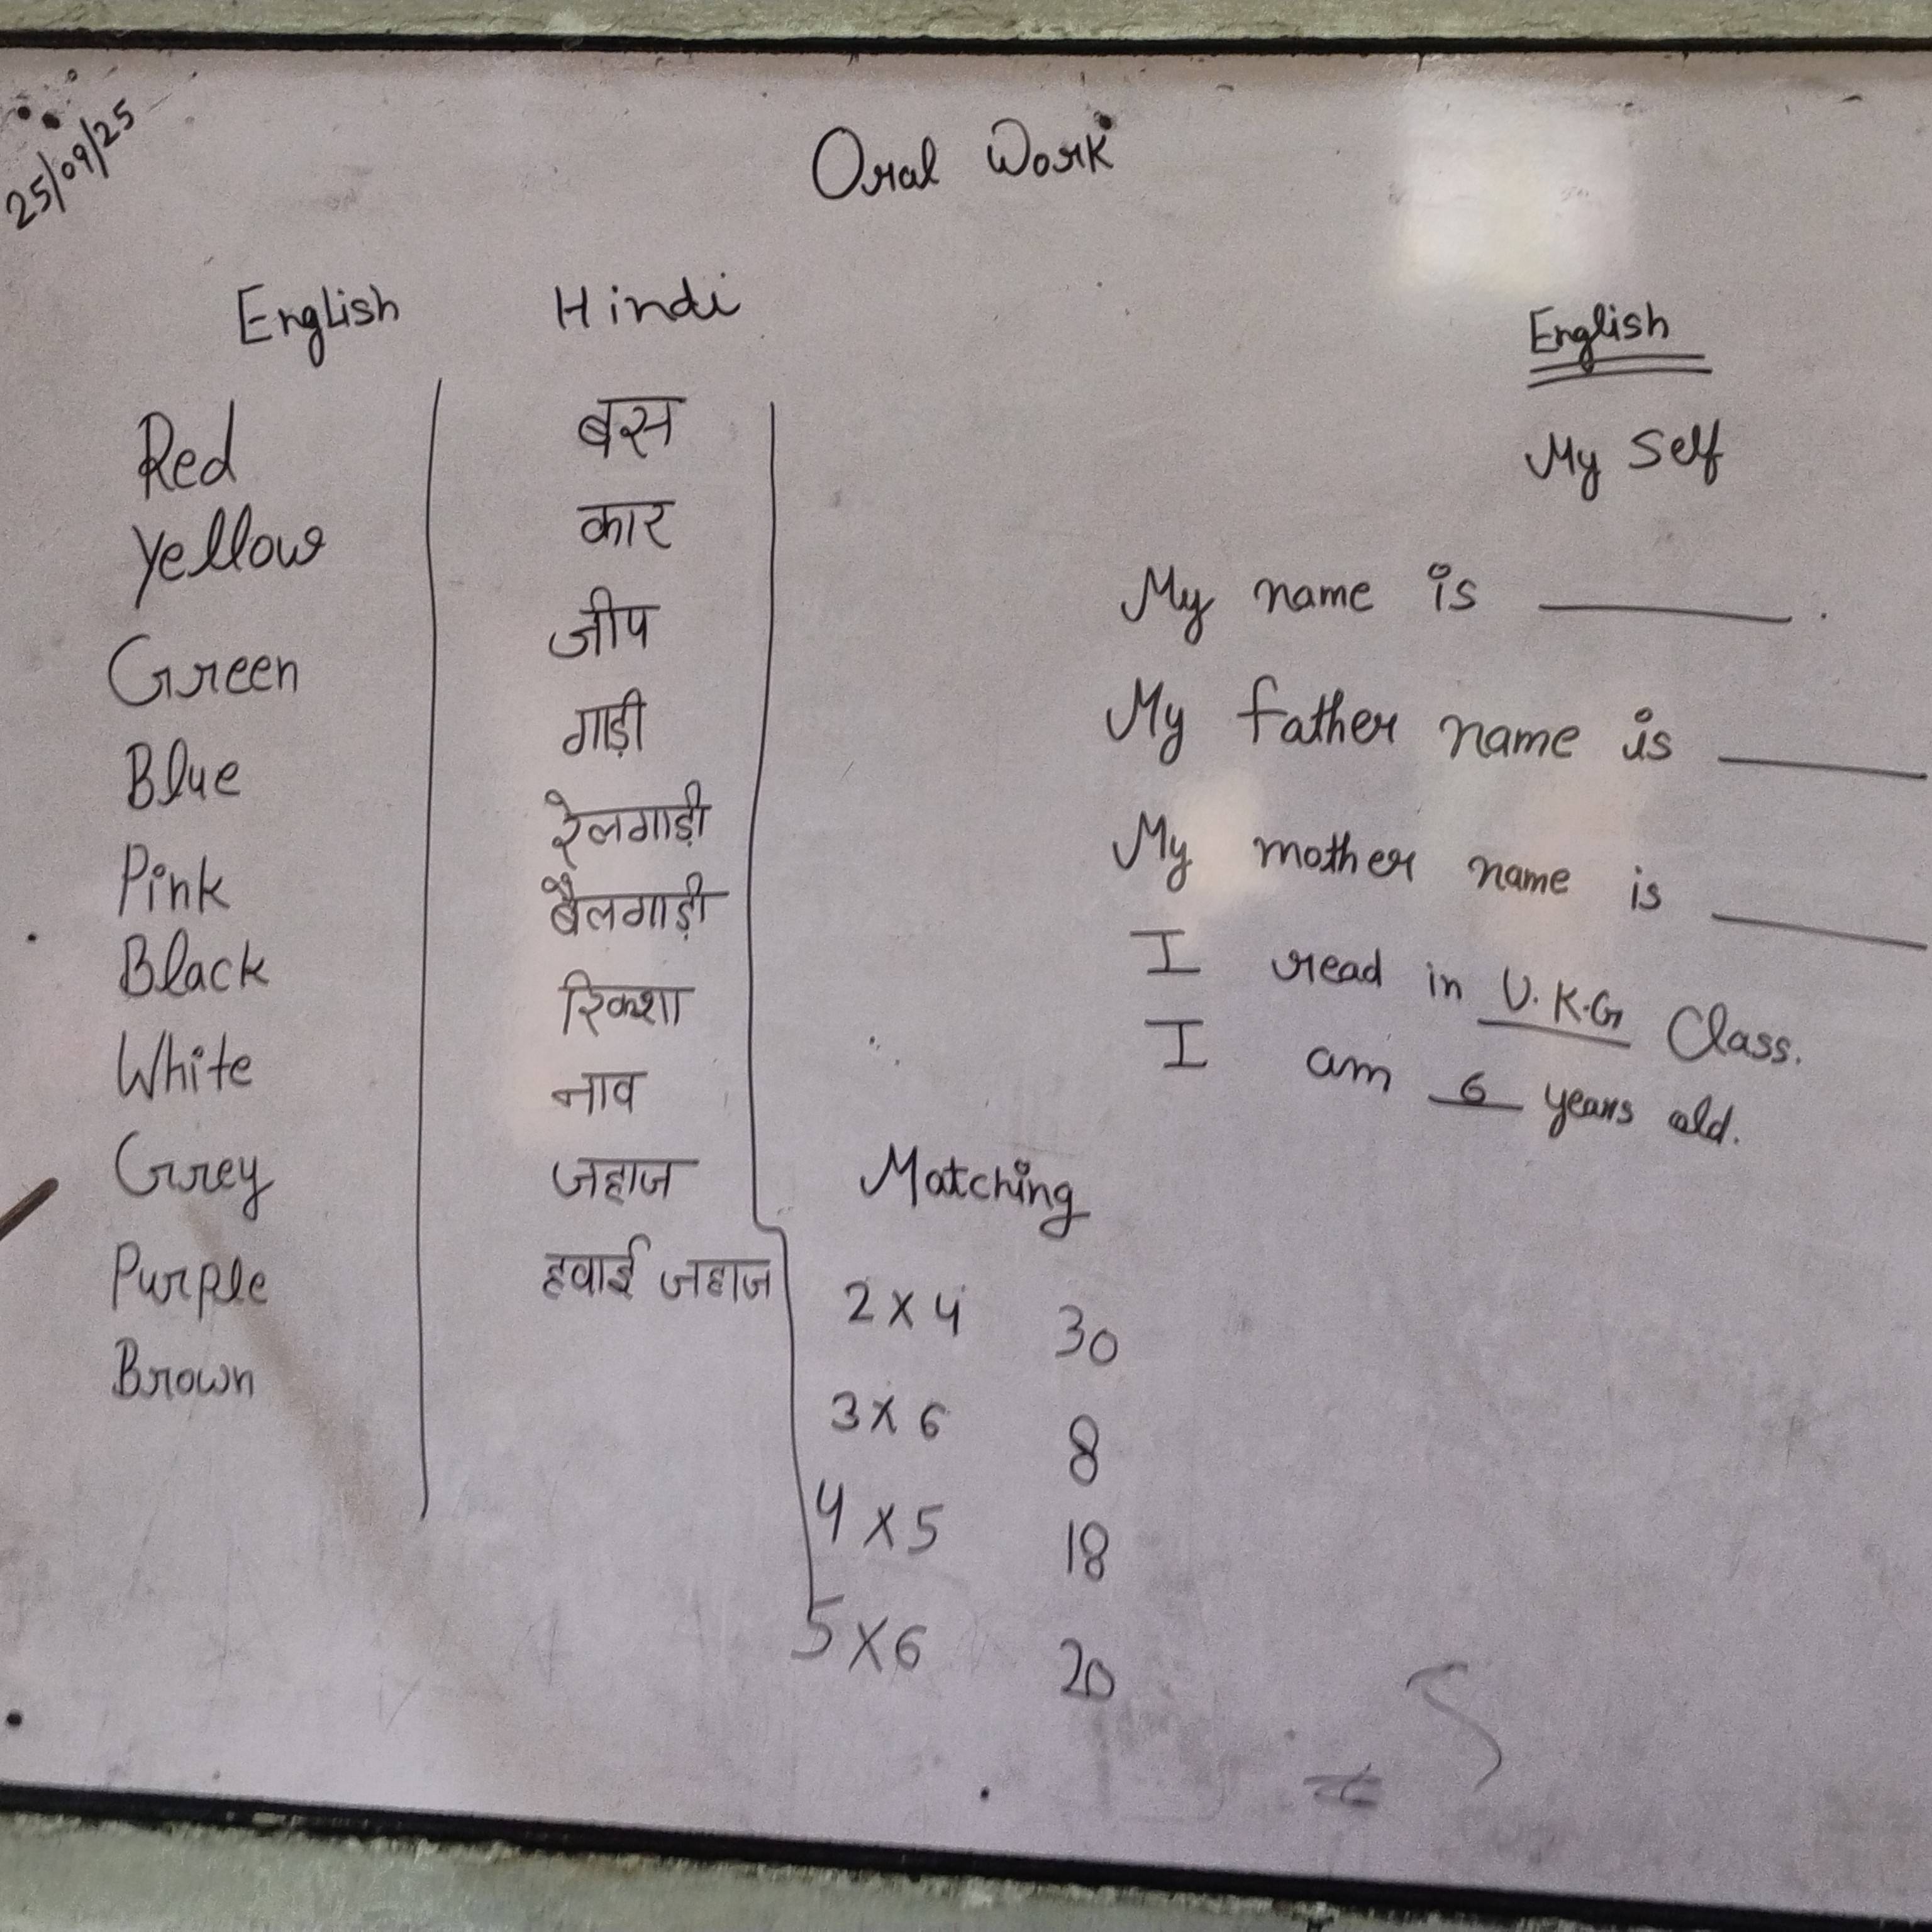 25/09/25
Oral Work
English
Red
Yellow
Green
Blue
Pink
Black
White
Grey
Purple
Brown
Hindi
बस
कार
जीप
गाड़ी
रेलगाड़ी
बैलगाड़ी
रिक्शा
नाव
जहाज
हवाई जहाज
English
My Self
My name is ______.
My father name is ______
My mother name is ______
I read in U.K.G Class.
I am 6 years old.
Matching
2 x 4 30
3 x 6 8
4 x 5 18
5 x 6 20